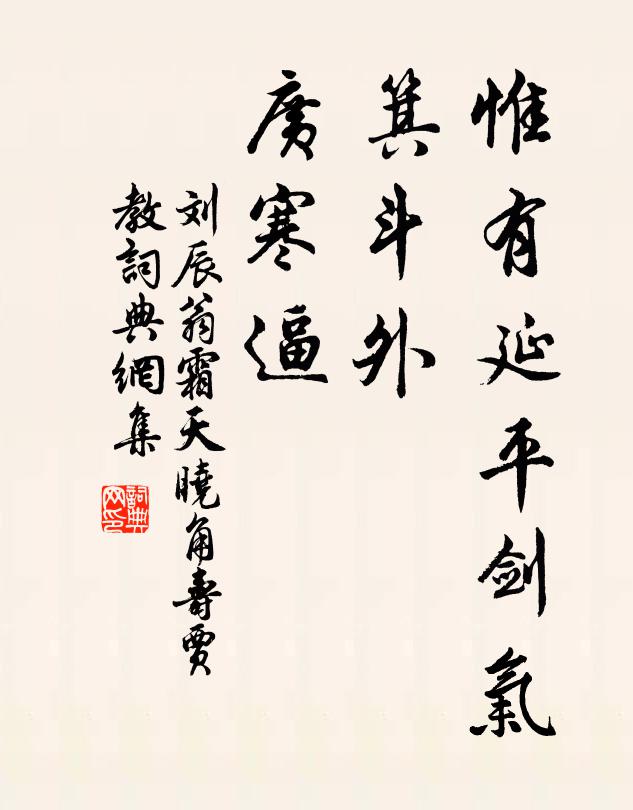 惟有延平剑氣
箕斗外
廣寒逼
刘辰翁霜天曉角壽賈
教詞典網集
詞典網印